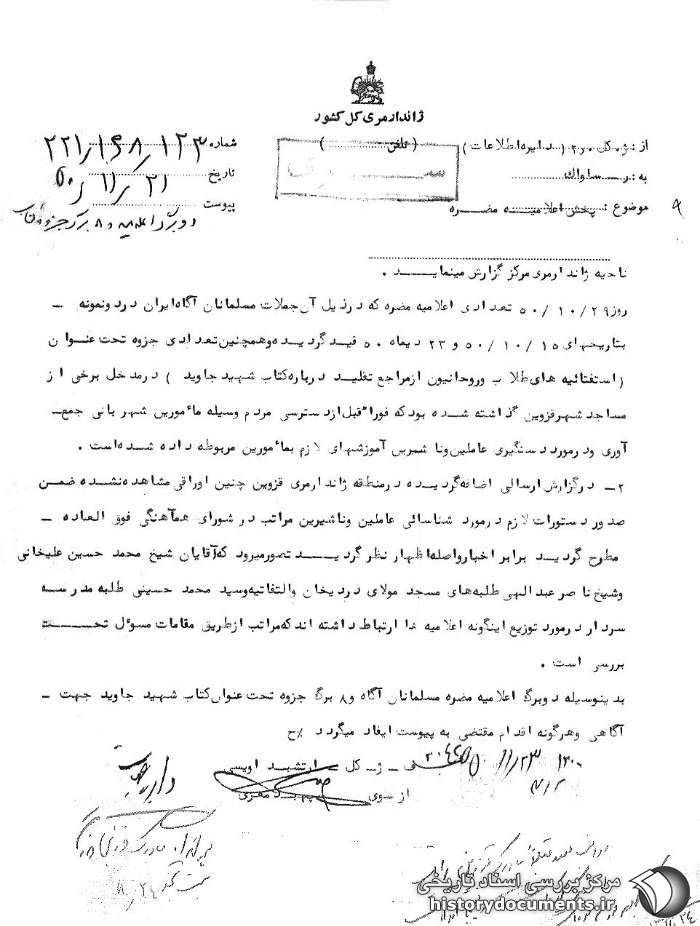 ژاندارمری کل کشور
از : ژ.کل ر-۲ ( دایره اطلاعات ) ( تلفن )
شماره ۲۲۱/۱۶۸/۱۲۳
به : ر... ساواک
تاریخ ۵۰/۱۱/۲۱
موضوع : پخش اعلامیه مضره
پیوست
ناحیه ژاندارمری مرکز گزارش مینماید .
روز ۲۹/ ۱۰ / ۵۰ تعدادی اعلامیه مضره که در ذیل آن جملات مسلمانان آگاه ایران در دو نمونه ـ
بتاریخهای ۱۵/ ۱۰/ ۵۰ و ۲۳ دیماه ۵۰ قید گردیده و همچنین تعدادی جزوه تحت عنوان
(استفتائیه های طلاب وروحانیون ازمراجع تقلید درباره کتاب شهید جاوید ) درمدخل برخی از
مساجد شهر قزوین گذاشته شده بود که فورا" قبل از دسترسی مردم وسیله مأمورین شهربانی جمع ـ
آوری ودر مورد دستگیری عاملین وناشرین آموزشهای لازم بمأمورین مربوطه داده شده است .
۲ـ درگزارش ارسالی اضافه گردیده درمنطقه ژاندارمری قزوین چنین اوراقی مشاهده نشده ضمن
صدور دستورات لازم درمورد شناسائی عاملین وناشرین مراتب در شورای هماهنگی فوق العاده ـ
مطرح گردید برابر اخبارواصله اظهار نظر گردید تصورمیرود که آقایان شیخ محمد حسین علیخانی
وشیخ ناصر عبدالهی طلبه های مسجد مولای دردیخان والتفاتیه وسید محمد حسینی طلبه مدرسه
سردار درمورد توزیع اینگونه اعلامیه ها ارتباط داشته اند که مراتب ازطریق مقامات مسؤل تحت
بررسی است .
بدینوسیله دوبرگ اعلامیه مضره مسلمانان آگاه و۸ برگ جزوه تحت عنوان کتاب شهید جاوید جهت ـ
آگاهی وهرگونه اقدام مقتضی به پیوست ایفاد میگردد %ح
ژ ـ کل ارتشبد اویسی
از سوی سپهبد معزی
مرکز بررسی اسناد تاریخی
historydocuments.ir